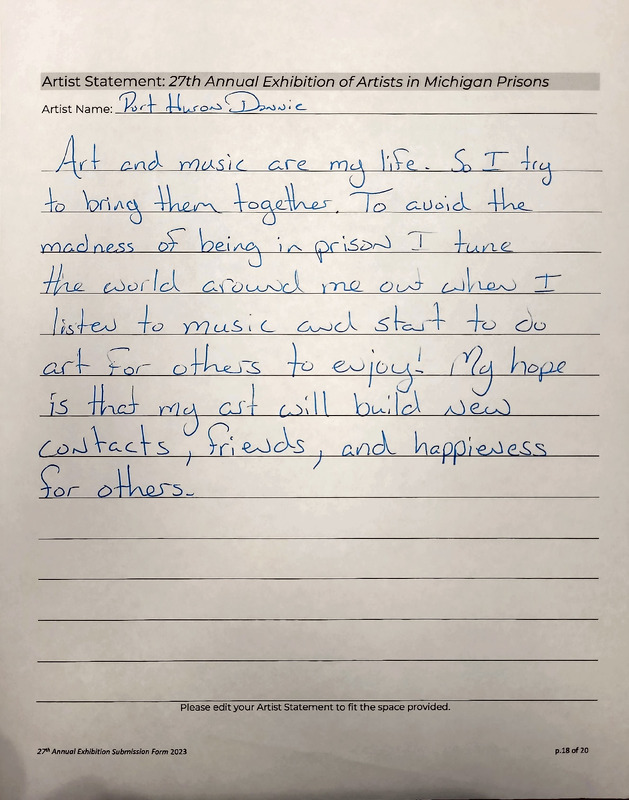 Artist Statement: 27th Annual Exhibition of Artists in Michigan Prisons
Artist Name: Port Huron Donnie
Art and music are my life. So I try
to bring them together. To avoid the
madness of being in prison I tune
the world around me out when I
listen to music and start to do
art for others to enjoy! My hope
is that my art will build new
contacts, friends, and happieness
for others.
Please edit your Artist Statement to fit the space provided.
27th Annual Exhibition Submission Form 2023 p.18 of 20